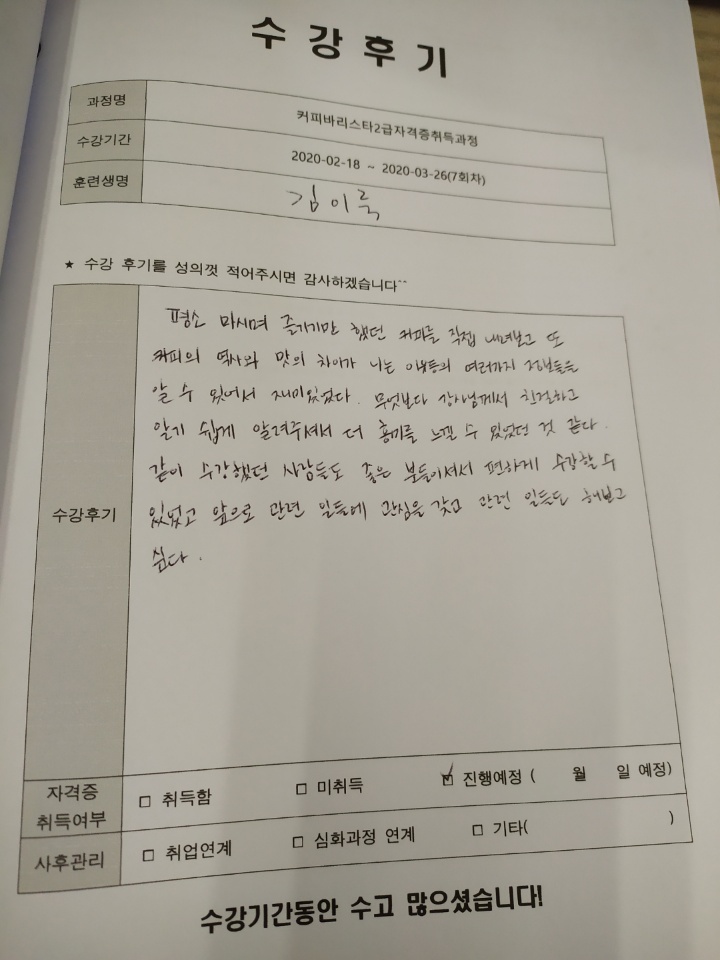 수강후기
과정명 커피바리스타2급자격증취득과정
수강기간 2020-02-18 ~ 2020-03-26(7회차)
훈련생명 김이룩
★ 수강 후기를 성의껏 적어주시면 감사하겠습니다^^
수강후기
평소 마시며 즐기기만 했던 커피를 직접 내려보고 또
커피의 역사와 맛의 차이가 나는 이유등의 여러가지 정보들을
알 수 있어서 재미있었다. 무엇보다 강사님께서 친절하고
알기 쉽게 알려주셔서 더 흥미를 느낄 수 있었던 것 같다.
같이 수강했던 사람들도 좋은 분들이셔서 편하게 수강할 수
있었고 앞으로 관련 일들에 관심을 갖고 관련 일들도 해보고
싶다.
자격증 취득여부 □ 취득함 □ 미취득 ☑ 진행예정 ( 월 일 예정)
사후관리 □ 취업연계 □ 심화과정 연계 □ 기타( )
수강기간동안 수고 많으셨습니다!